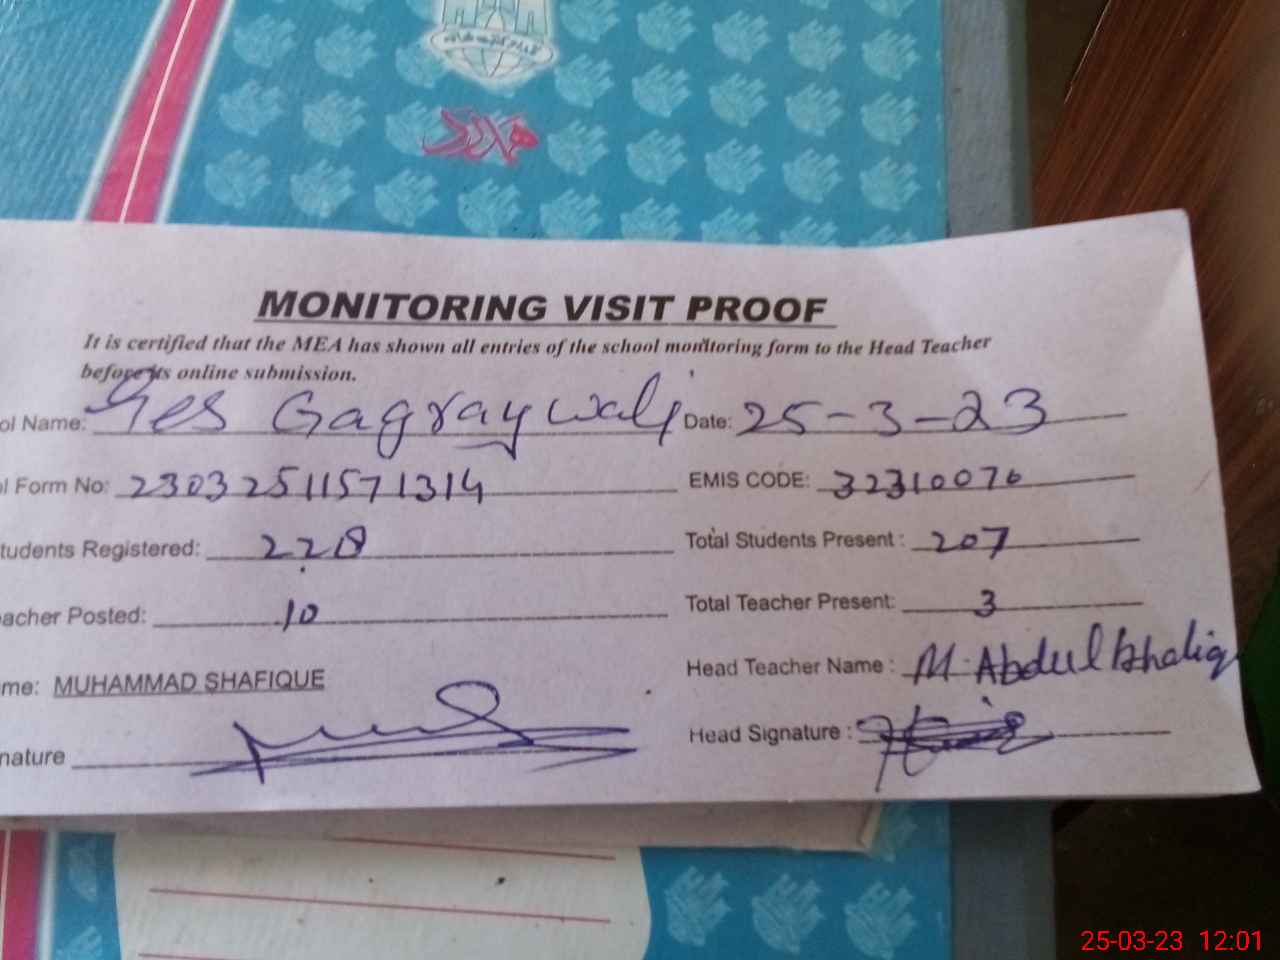 ہمدرد
MONITORING VISIT PROOF
It is certified that the MEA has shown all entries of the school monitoring form to the Head Teacher
before its online submission.
ol Name: Ges Gagraywali Date: 25-3-23
l Form No: 23032511571314 EMIS CODE: 32310076
tudents Registered: 228 Total Students Present : 207
eacher Posted: 10 Total Teacher Present: 3
me: MUHAMMAD SHAFIQUE Head Teacher Name : M. Abdul khaliq
nature Head Signature :
25-03-23 12:01